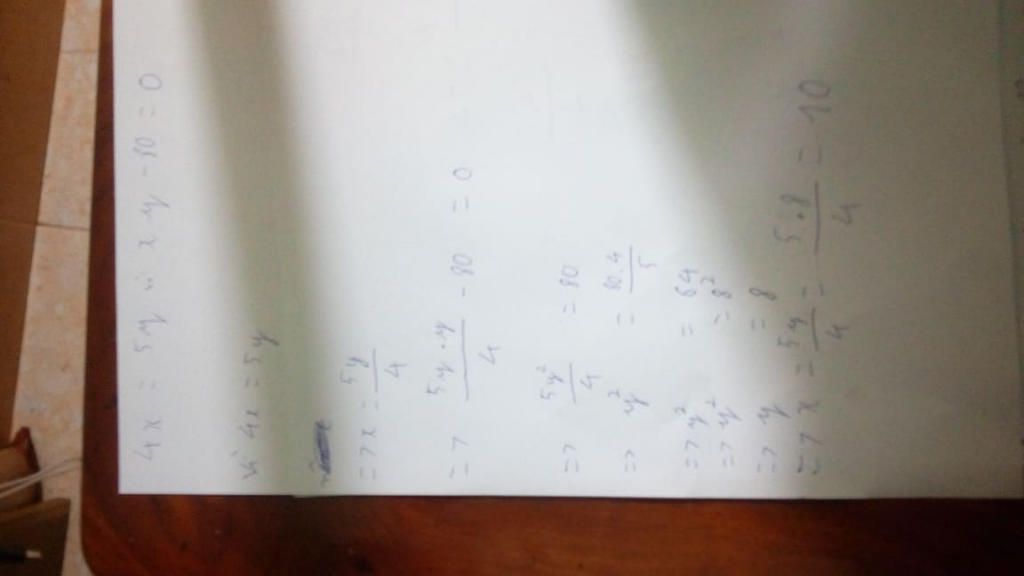 4x = 5y và xy - 80 = 0
Vì 4x = 5y
=> x = 5y/4
=> 5y.y/4 - 80 = 0
=> 5y²/4 = 80
=> y² = 80.4/5
=> y² = 64
=> y² = 8²
=> y = 8
=> x = 5y/4 = 5.8/4 = 10